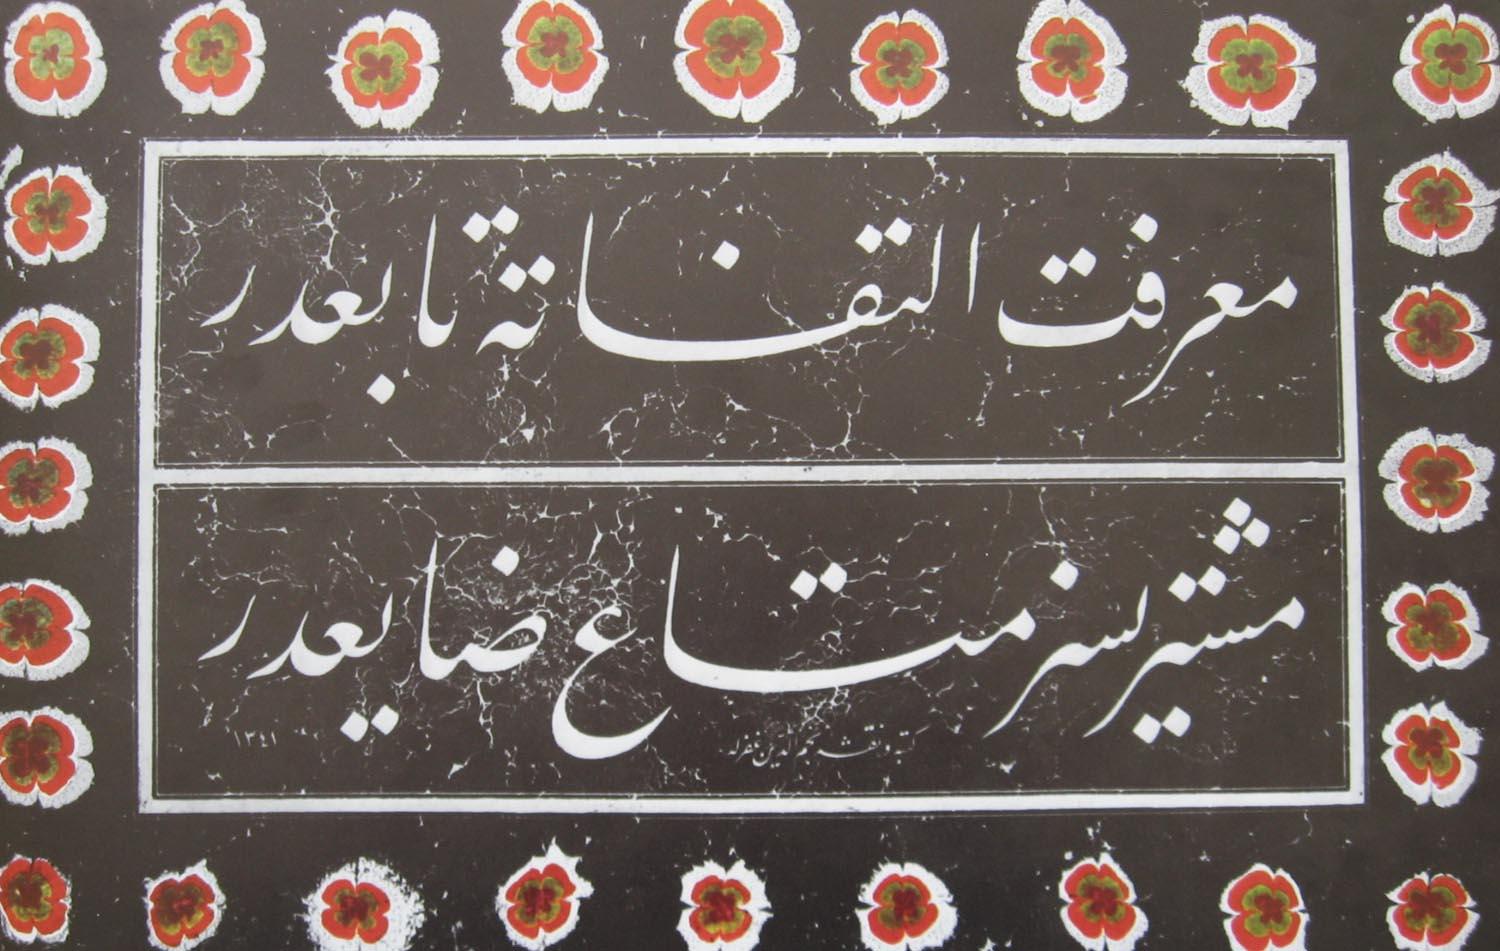 معرفت التفاته تابعدر
مشتریسز متاع ضایعدر
کتبه و نقشه نجم الدین غفرله
١٣٤١